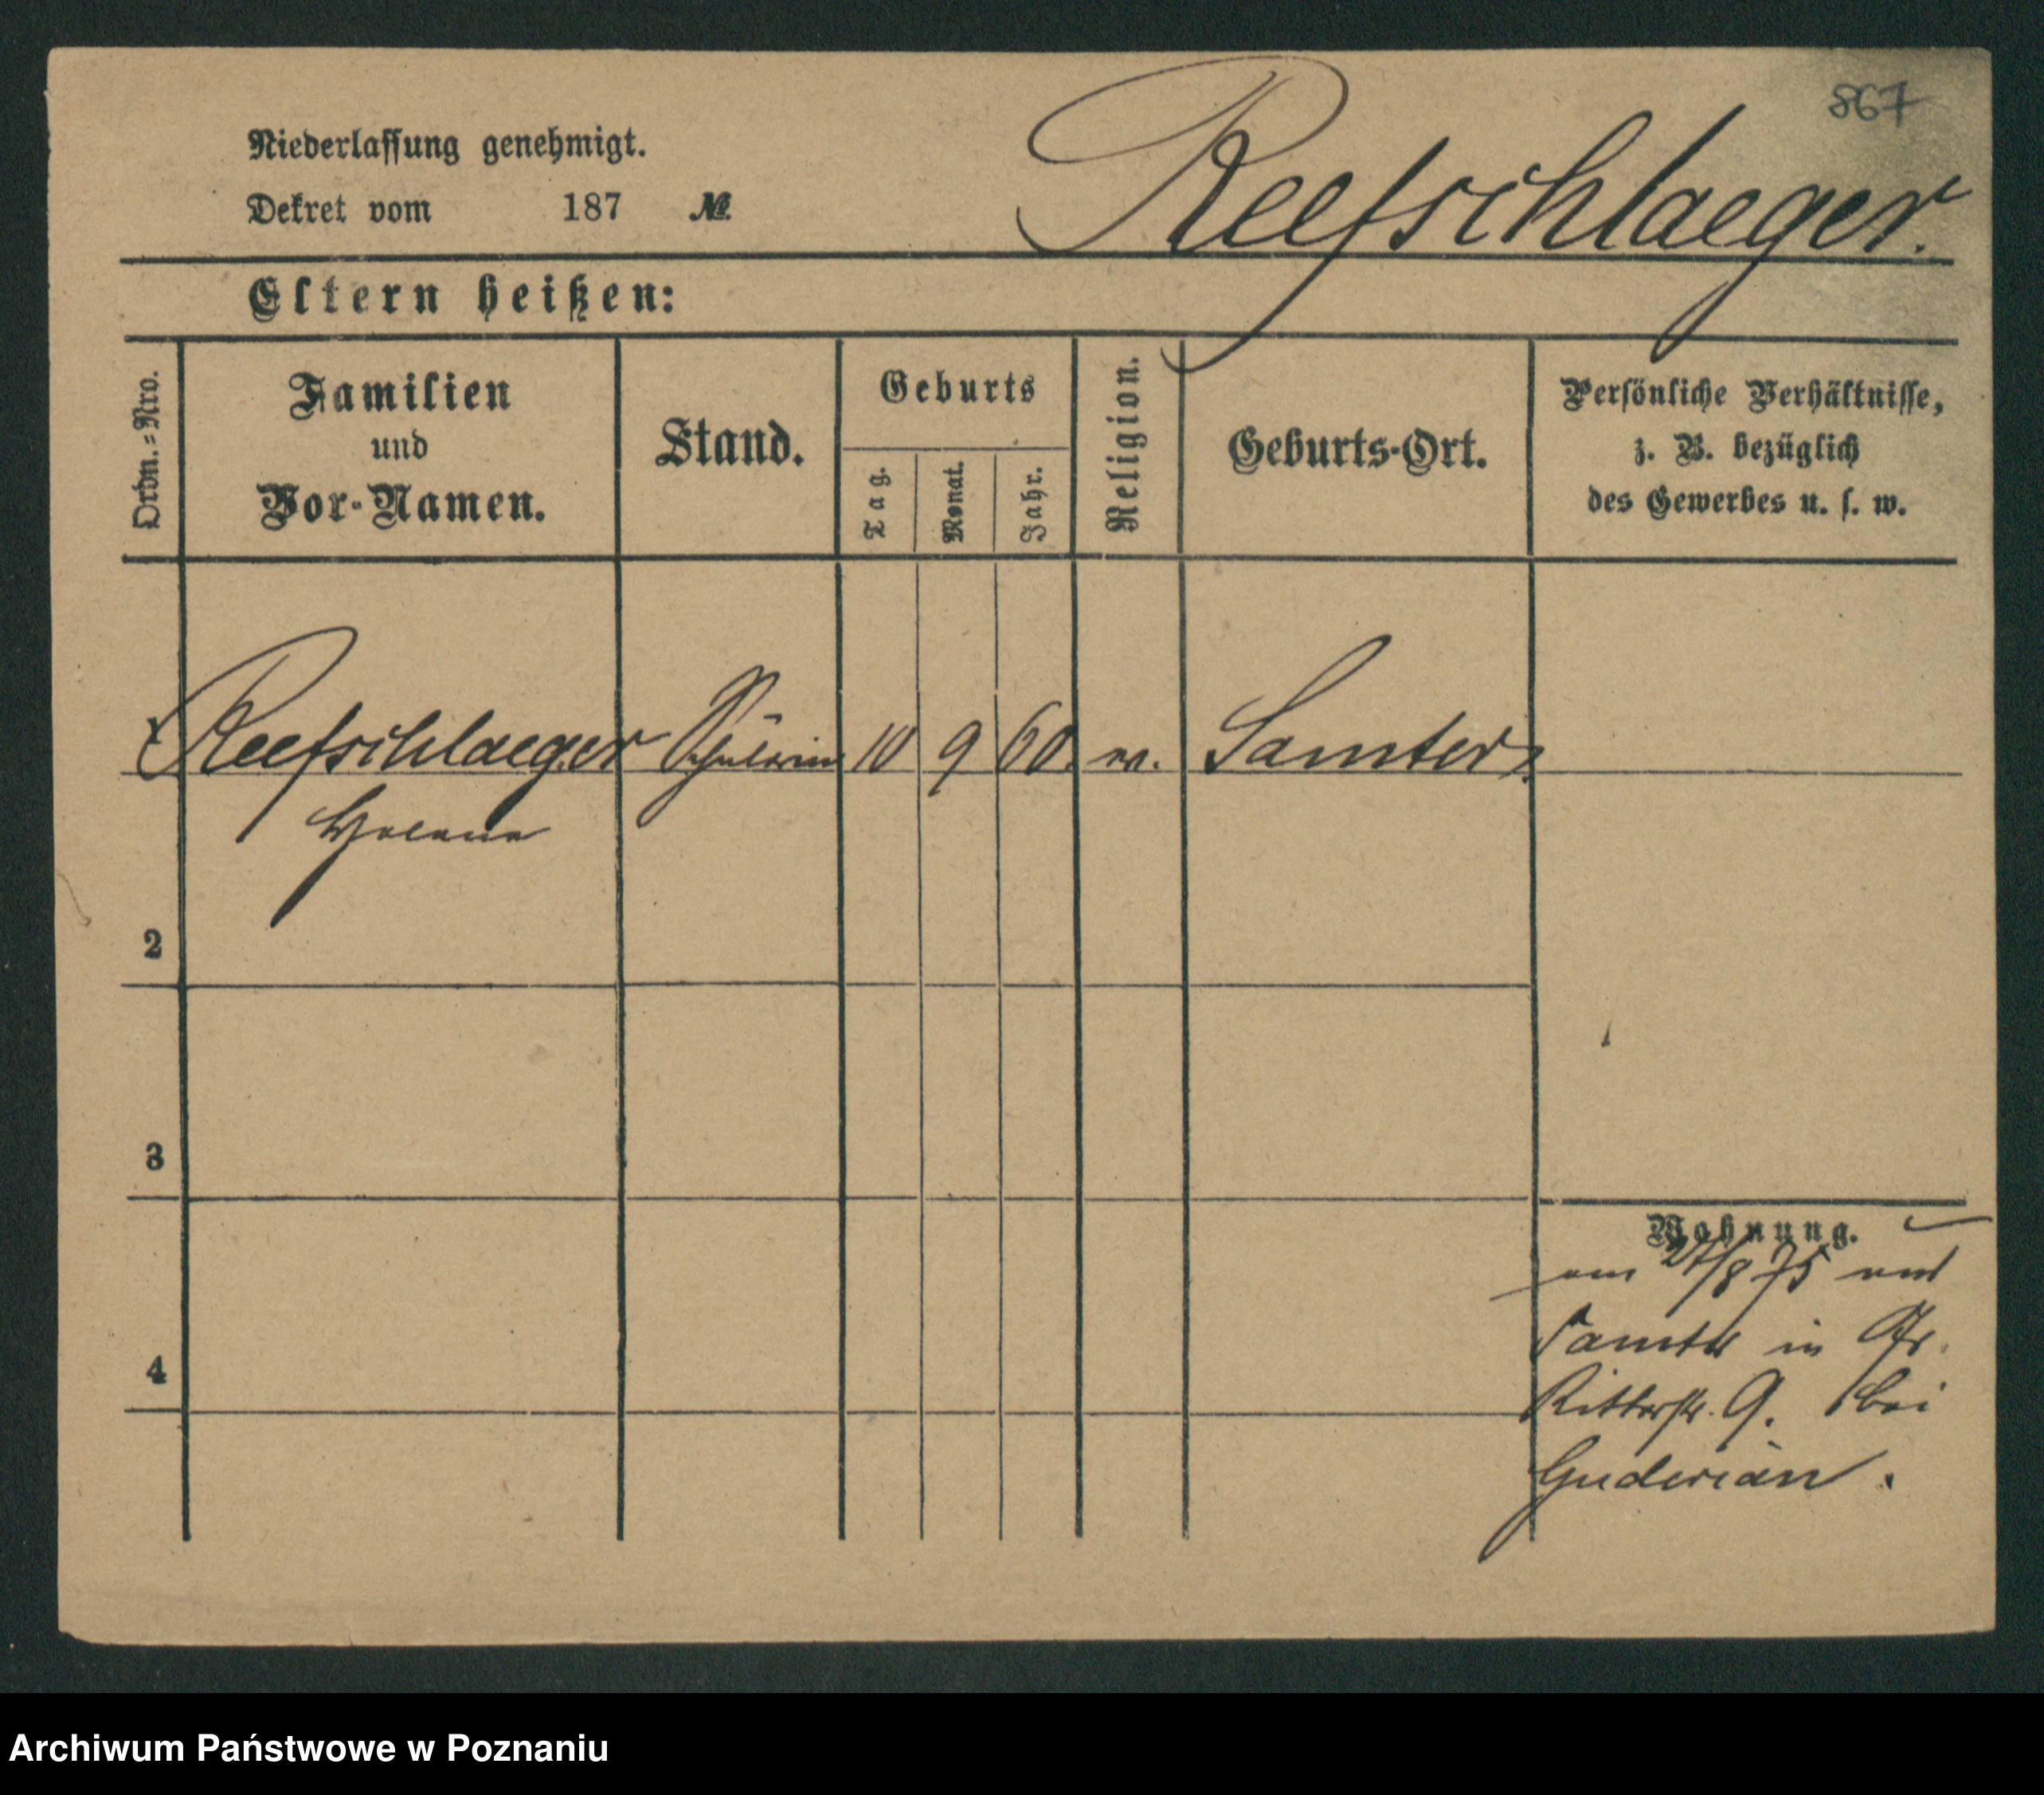 867
Niederlassung genehmigt.
Reefschlaeger.
Dekret vom 187 №.
Eltern heißen:
Ordn.=Nro.
Familien
und
Vor-Namen.
Stand.
Geburts
Tag.
Monat.
Jahr.
Religion.
Geburts-Ort.
Persönliche Verhältnisse,
z. B. bezüglich
des Gewerbes u. s. w.
Reefschlaeger Schülerin 10 9 60. ev. Samter.
Helene
2
3
4
Wohnung.
am 27/8 75 aus
Samter in Gr.
Ritterstr. 9. bei
Guderian.
Archiwum Państwowe w Poznaniu